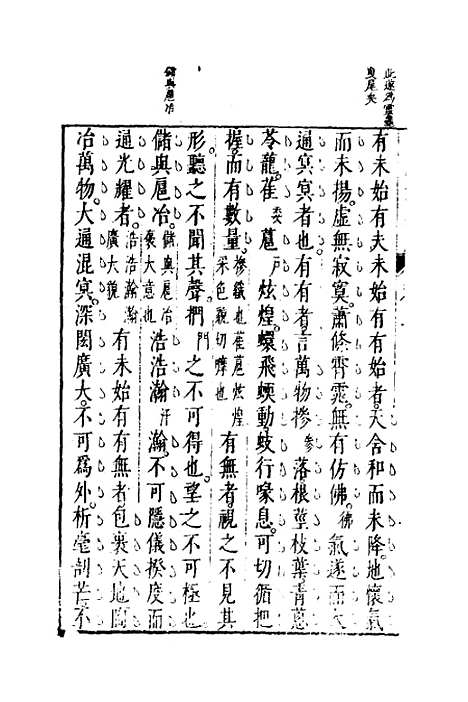 儲與扈冶
有未始有夫未始有有始者。天含和而未降。地懷氣
而未揚。虛無寂寞。蕭條霄霓。無有仿佛。彿氣遂而大
通冥冥者也。有有者言萬物摻參落根莖枝葉青蔥
苓龍。萑委扈戶炫煌。蠉飛蝡動蚑行喙息。可切循把
握。而有數量。摻纖也萑扈炫煌采色貌切摩也有無者。視之不見其
形聽之不聞其聲捫門之不可得也。望之不可極也
儲與扈冶。儲與扈冶褒大意也浩浩瀚汗瀚。不可隱儀揆度而
通光耀者。浩浩瀚瀚廣大貌有未始有有無者包裹天地陶
冶萬物。大通混冥。深閎廣大。不可爲外。析毫剖芒不